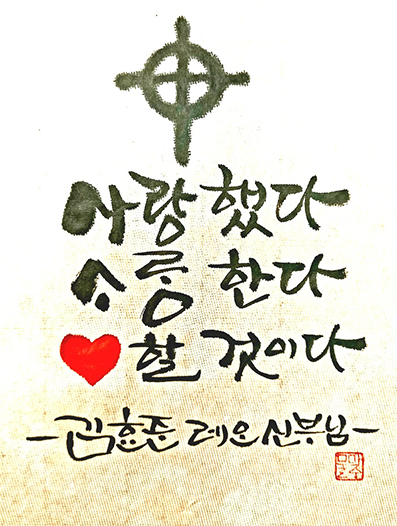 사랑 했다
스릉 한다
♥ 할 것이다
-김효준 레오 신부님-